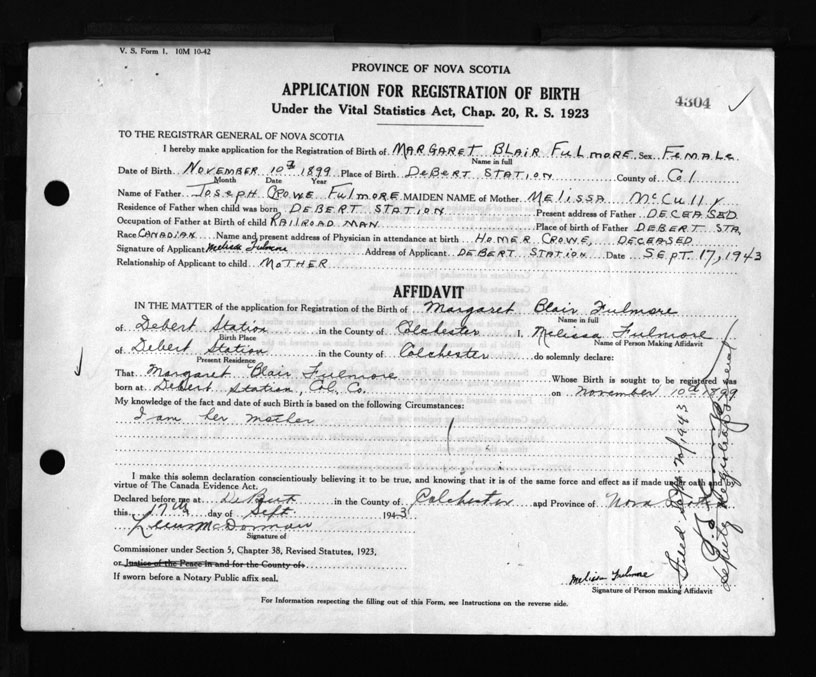 V. S. Form 1. 10M 10-42
PROVINCE OF NOVA SCOTIA
APPLICATION FOR REGISTRATION OF BIRTH
4304
Under the Vital Statistics Act, Chap. 20, R. S. 1923
TO THE REGISTRAR GENERAL OF NOVA SCOTIA
I hereby make application for the Registration of Birth of MARGARET BLAIR FULMORE Sex FEMALE
Name in full
Date of Birth NOVEMBER 10th 1899 Place of Birth DEBERT STATION County of Col
Month Date Year
Name of Father JOSEPH CROWE FULMORE MAIDEN NAME of Mother MELISSA McCULLY
Residence of Father when child was born DEBERT STATION Present address of Father DECEASED
Occupation of Father at Birth of child RAILROAD MAN Place of birth of Father DEBERT STA,
Race CANADIAN Name and present address of Physician in attendance at birth HOMER CROWE, DECEASED
Signature of Applicant Melissa Fulmore Address of Applicant DEBERT STATION Date SEPT. 17, 1943
Relationship of Applicant to child MOTHER
AFFIDAVIT
IN THE MATTER of the application for Registration of the Birth of Margaret Blair Fulmore
Name in full
of Debert Station in the County of Colchester I, Melissa Fulmore
Birth Place Name of Person Making Affidavit
of Debert Station in the County of Colchester do solemnly declare:
Present Residence
That Margaret Blair Fulmore Whose Birth is sought to be registered was
born at Debert Station, Col. Co. on November 10th 1899
My knowledge of the fact and date of such Birth is based on the following Circumstances:
I am her mother
I make this solemn declaration conscientiously believing it to be true, and knowing that it is of the same force and effect as if made under oath and by
virtue of The Canada Evidence Act.
Declared before me at DeBert in the County of Colchester and Province of Nova Scotia
this 17th day of Sept. 1943
McDorman
Signature of
Commissioner under Section 5, Chapter 38, Revised Statutes, 1923,
or Justice of the Peace in and for the County of
If sworn before a Notary Public affix seal.
Melissa Fulmore
Signature of Person making Affidavit
For Information respecting the filling out of this Form, see Instructions on the reverse side.
1943
Deputy Registrar General